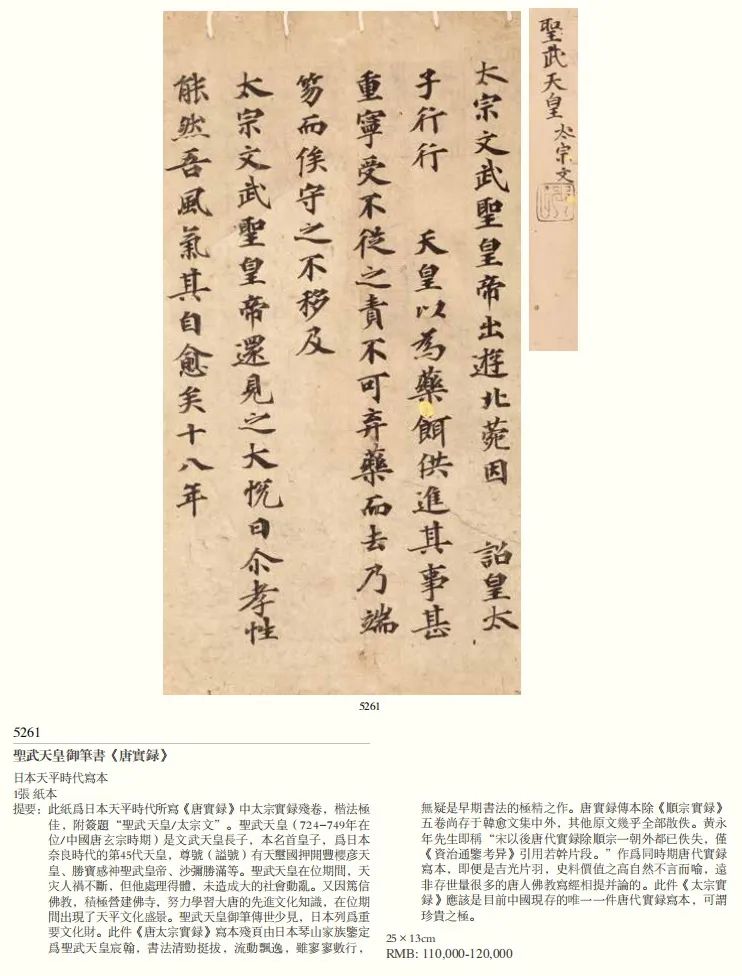 聖武天皇 太宗文
太宗文武聖皇帝出遊北菀因 詔皇太
子行行 天皇以為藥餌供進其事甚
重寧受不從之責不可弃藥而去乃端
笏而俟守之不移及
太宗文武聖皇帝還見之大悅曰尒孝性
能然吾風氣其自愈矣十八年
5261
5261
聖武天皇御筆書《唐實録》
日本天平時代寫本
1張 紙本
提要：此紙爲日本天平時代所寫《唐實録》中太宗實録殘卷，楷法極
佳，附簽題“聖武天皇/太宗文”。聖武天皇（724–749年在
位/中國唐玄宗時期）是文武天皇長子，本名首皇子，爲日本
奈良時代的第45代天皇，尊號（謚號）有天璽國押開豐櫻彦天
皇、勝寶感神聖武皇帝、沙彌勝滿等。聖武天皇在位期間，天
灾人禍不斷，但他處理得體，未造成大的社會動亂。又因篤信
佛教，積極營建佛寺，努力學習大唐的先進文化知識，在位期
間出現了天平文化盛景。聖武天皇御筆傳世少見，日本列爲重
要文化財。此件《唐太宗實録》寫本殘頁由日本琴山家族鑒定
爲聖武天皇宸翰，書法清勁挺拔，流動飄逸，雖寥寥數行，
無疑是早期書法的極精之作。唐實録傳本除《順宗實録》
五卷尚存于韓愈文集中外，其他原文幾乎全部散佚。黄永
年先生即稱“宋以後唐代實録除順宗一朝外都已佚失，僅
《資治通鑒考异》引用若幹片段。”作爲同時期唐代實録
寫本，即便是吉光片羽，史料價值之高自然不言而喻，遠
非存世量很多的唐人佛教寫經相提并論的。此件《太宗實
録》應該是目前中國現存的唯一一件唐代實録寫本，可謂
珍貴之極。
25×13cm
RMB: 110,000-120,000